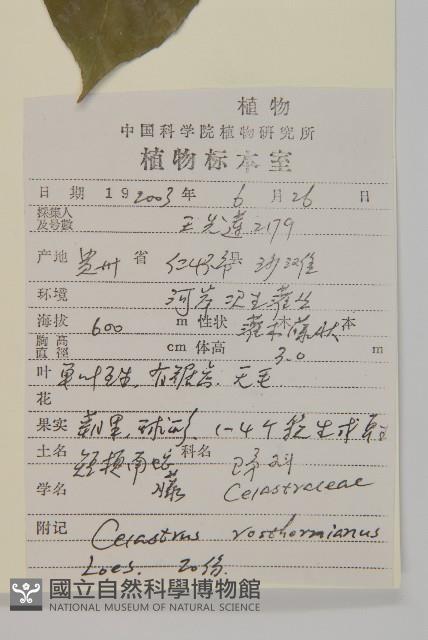 植物
中国科学院植物研究所
植物标本室
日 期 19 2003 年 6 月 26 日
採集人
及号數 王光達 2179
产地 贵州 省 仁怀市 县
环境 河岸 次生灌丛
海拔 600 m 性状 灌木 藤状 本
胸高
直徑 cm 体高 3.0 m
叶 单叶互生, 有锯齿, 无毛
花
果实 蒴果, 球形, 1-4个
土名 短梗南蛇藤 科名 卫矛科
学名 Celastraceae
附记 Celastrus rosthornianus
Loes. 20份.
國立自然科學博物館
NATIONAL MUSEUM OF NATURAL SCIENCE